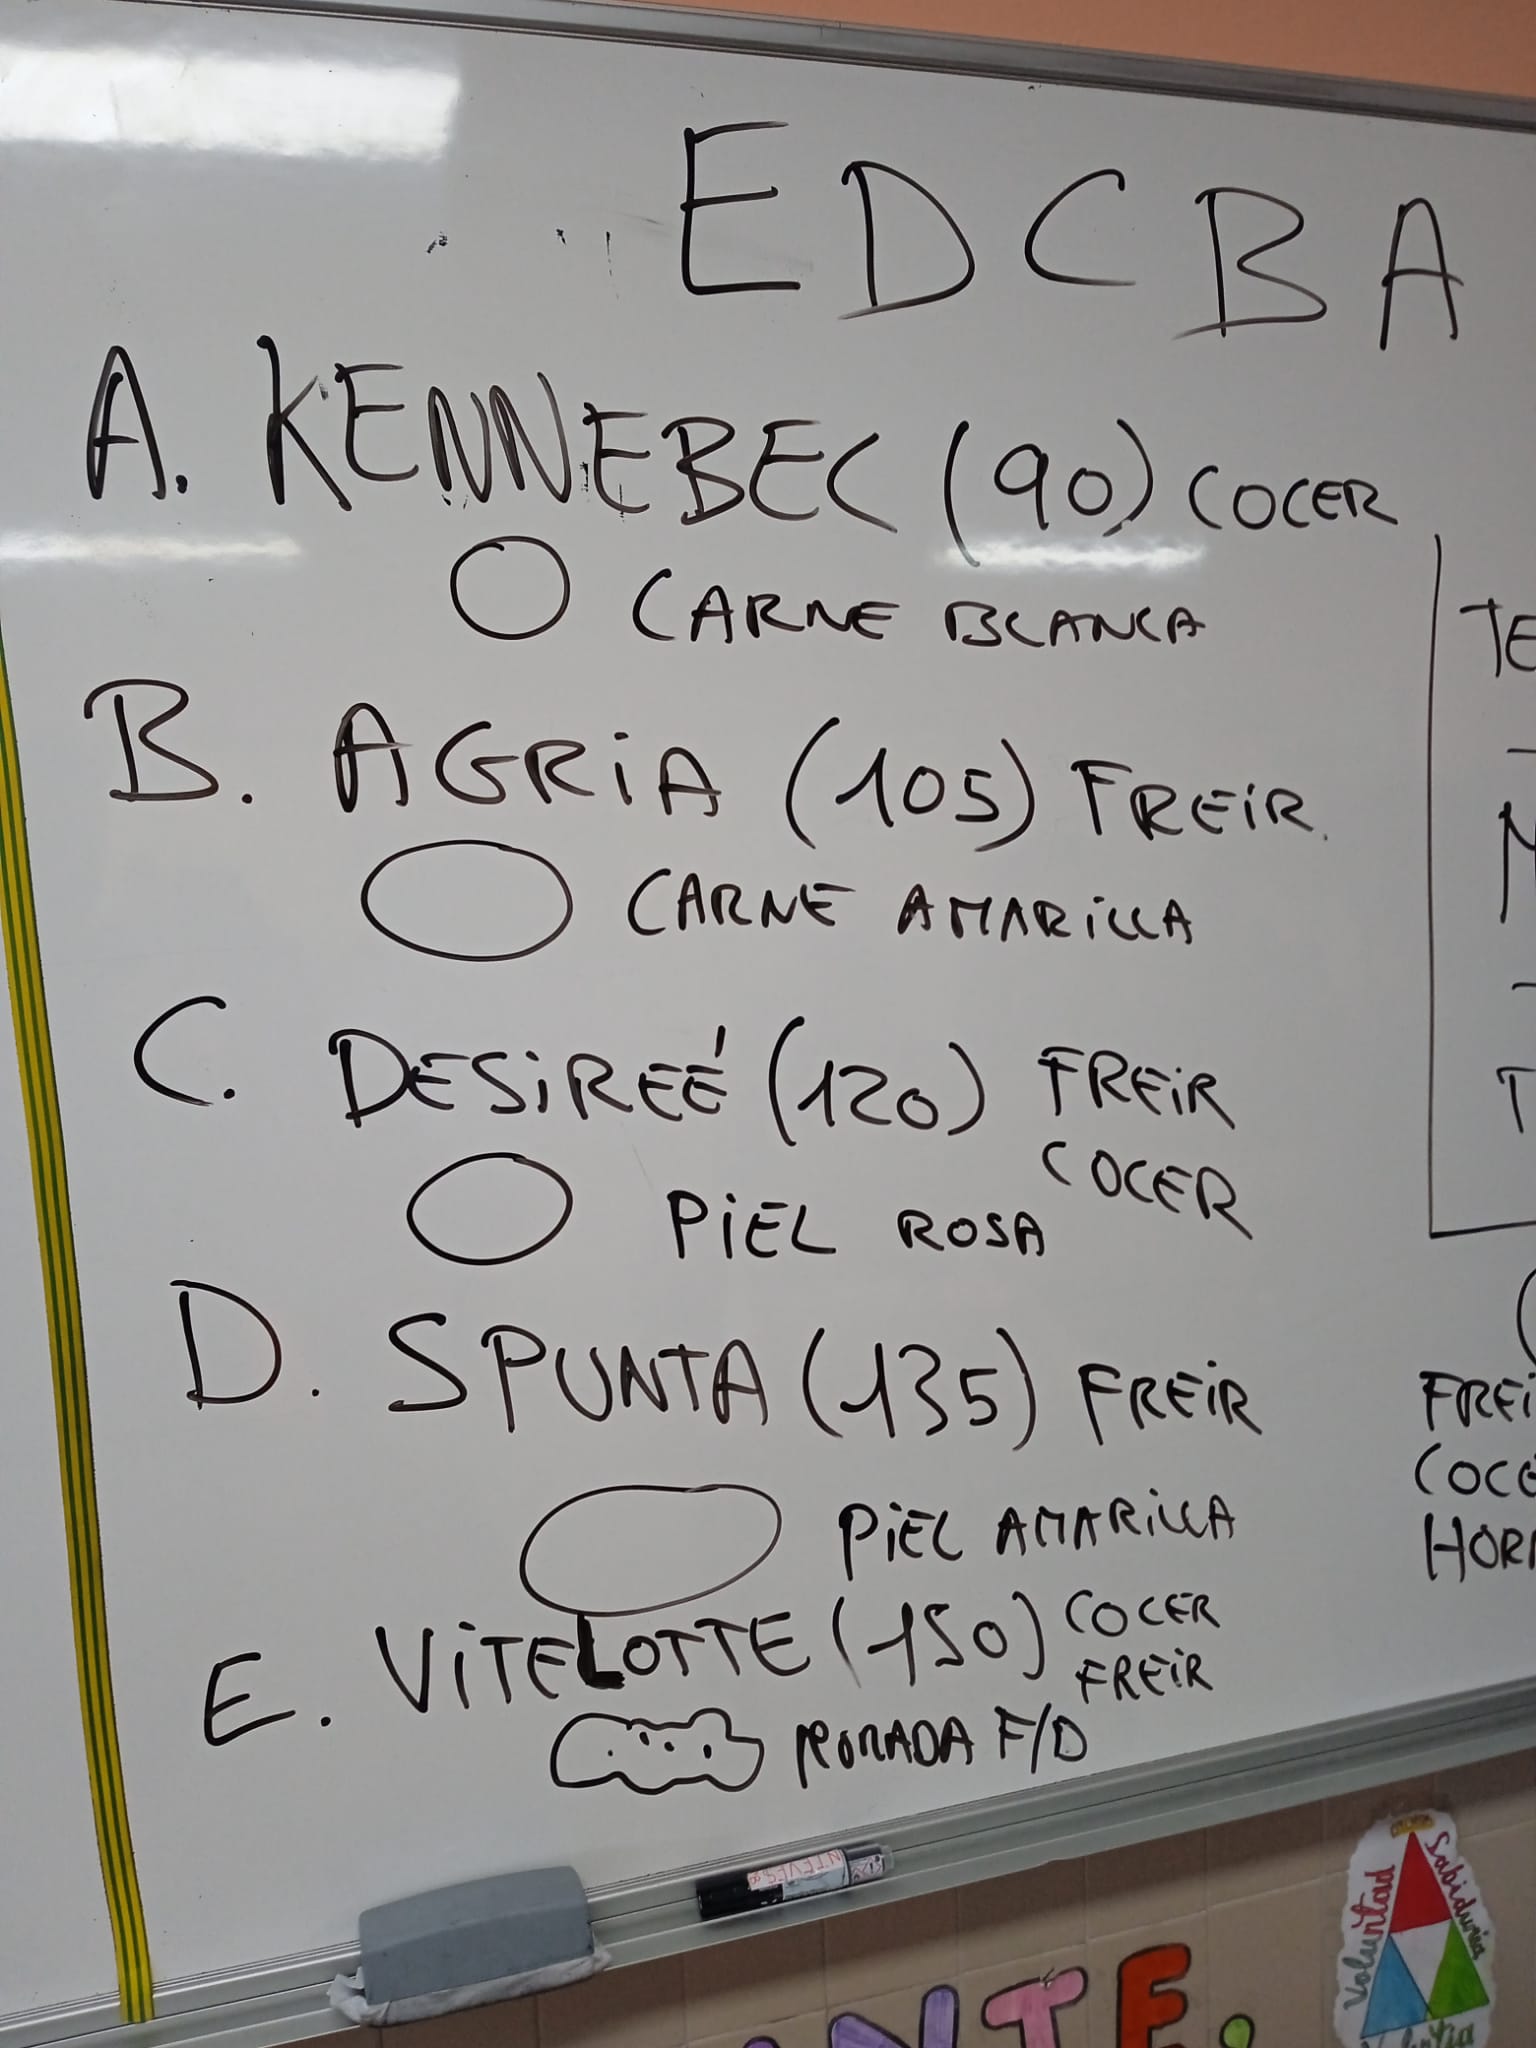 E D C B A
A. KENNEBEC (90) COCER
CARNE BLANCA
B. AGRiA (105) FREiR.
CARNE AMARiLLA
C. DESiREÉ (120) FREiR
COCER
PiEL ROSA
D. SPUNTA (135) FREiR
PiEL AMARiLLA
E. ViTELOTTE (150) COCER
FREiR
MORADA F/D
TE
M
T
FREi
COCE
HOR
Voluntad
Sabiduria
NTE.